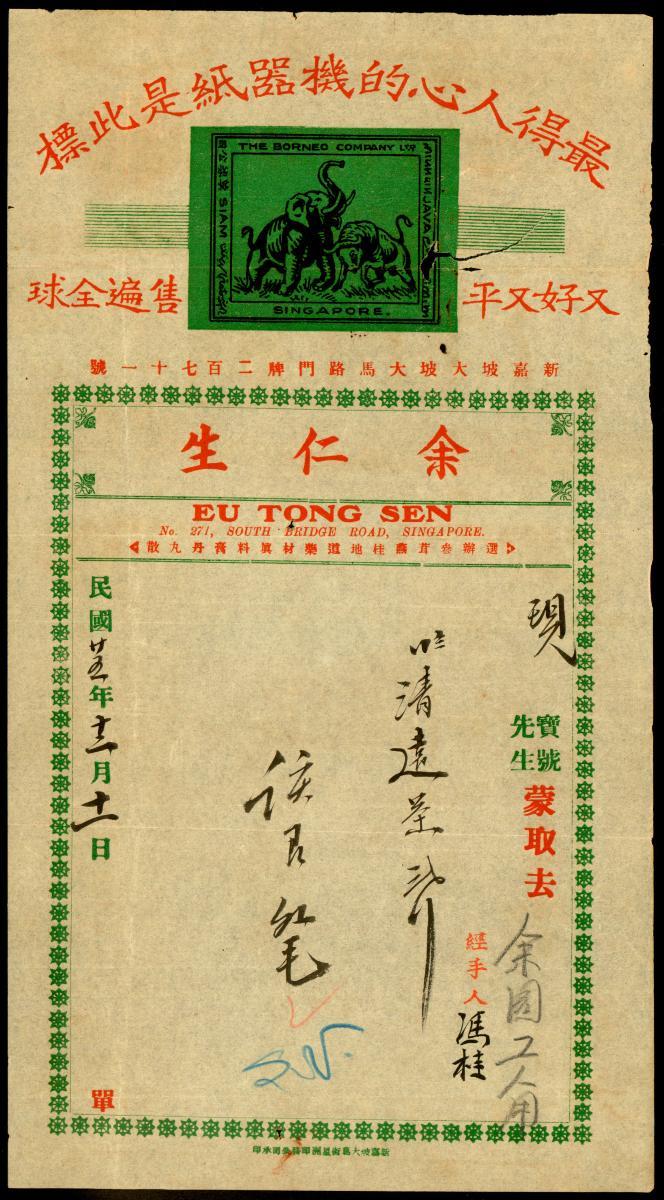 最得人心的機器紙是此標
THE BORNEO COMPANY LTD
SIAM
JAVA
SINGAPORE.
又好又平
售遍全球
新嘉坡大坡大馬路門牌二百七十一號
余仁生
EU TONG SEN
No. 271, SOUTH BRIDGE ROAD, SINGAPORE.
選辦參茸燕桂地道藥材眞料膏丹丸散
現
寶號
先生
蒙取去
余園工人用
經手人馮桂
清遠茶
民國廿五年十二月十一日
單
新嘉坡大馬街星洲印務公司承印